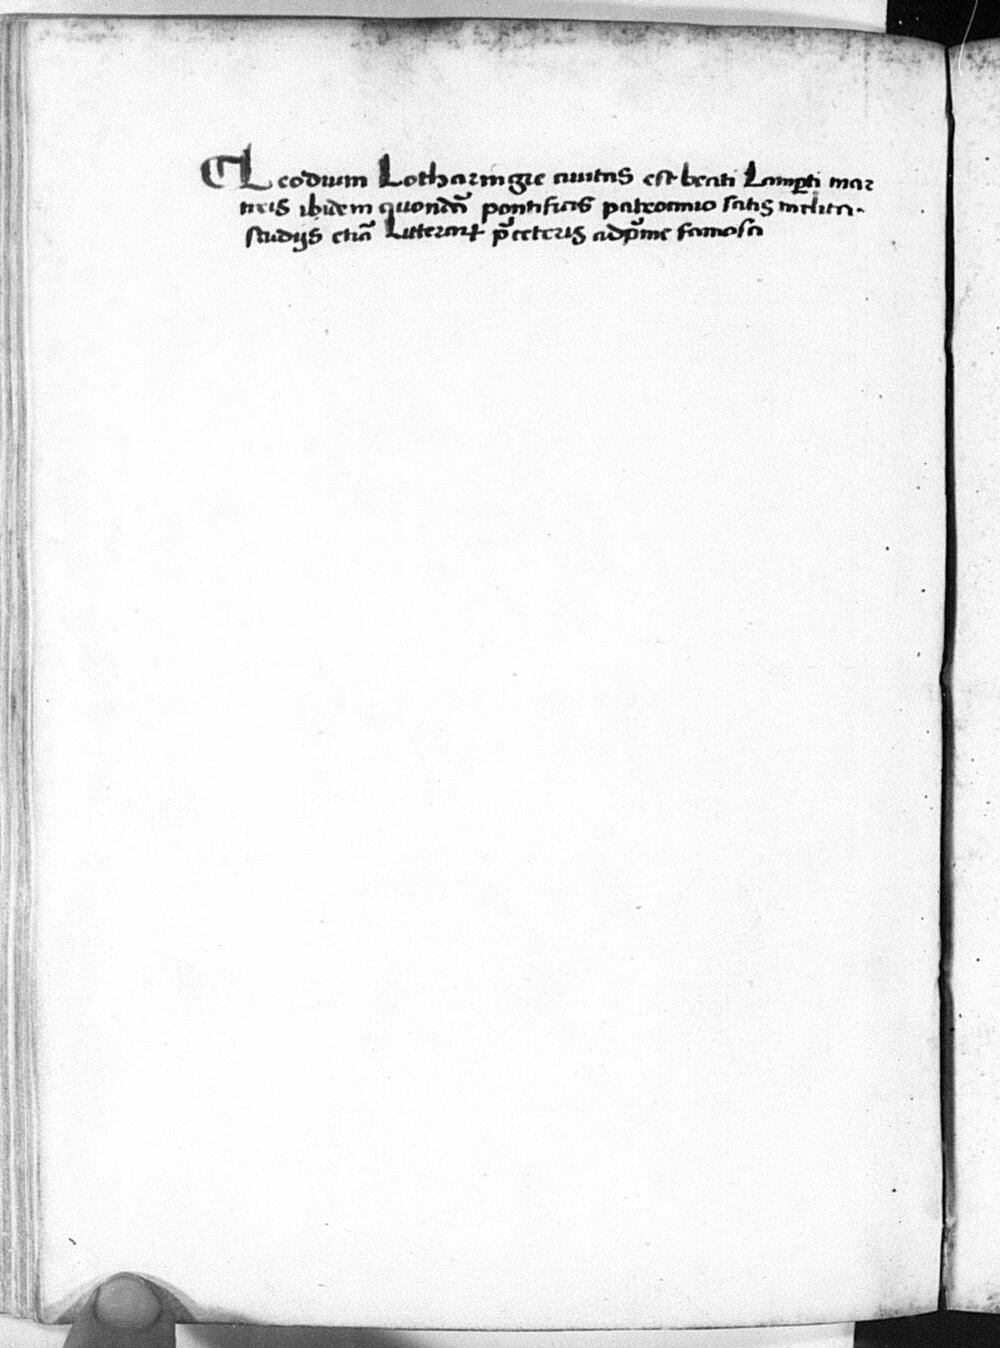 ¶ Leodium Lotharingie ciuitas est beati Lamp̱ti mar
tiris ibidem quondā pontificis patrocinio satis inclita.
studijs etiā Litteraꝝ p̄ceteris adp̄me famosa